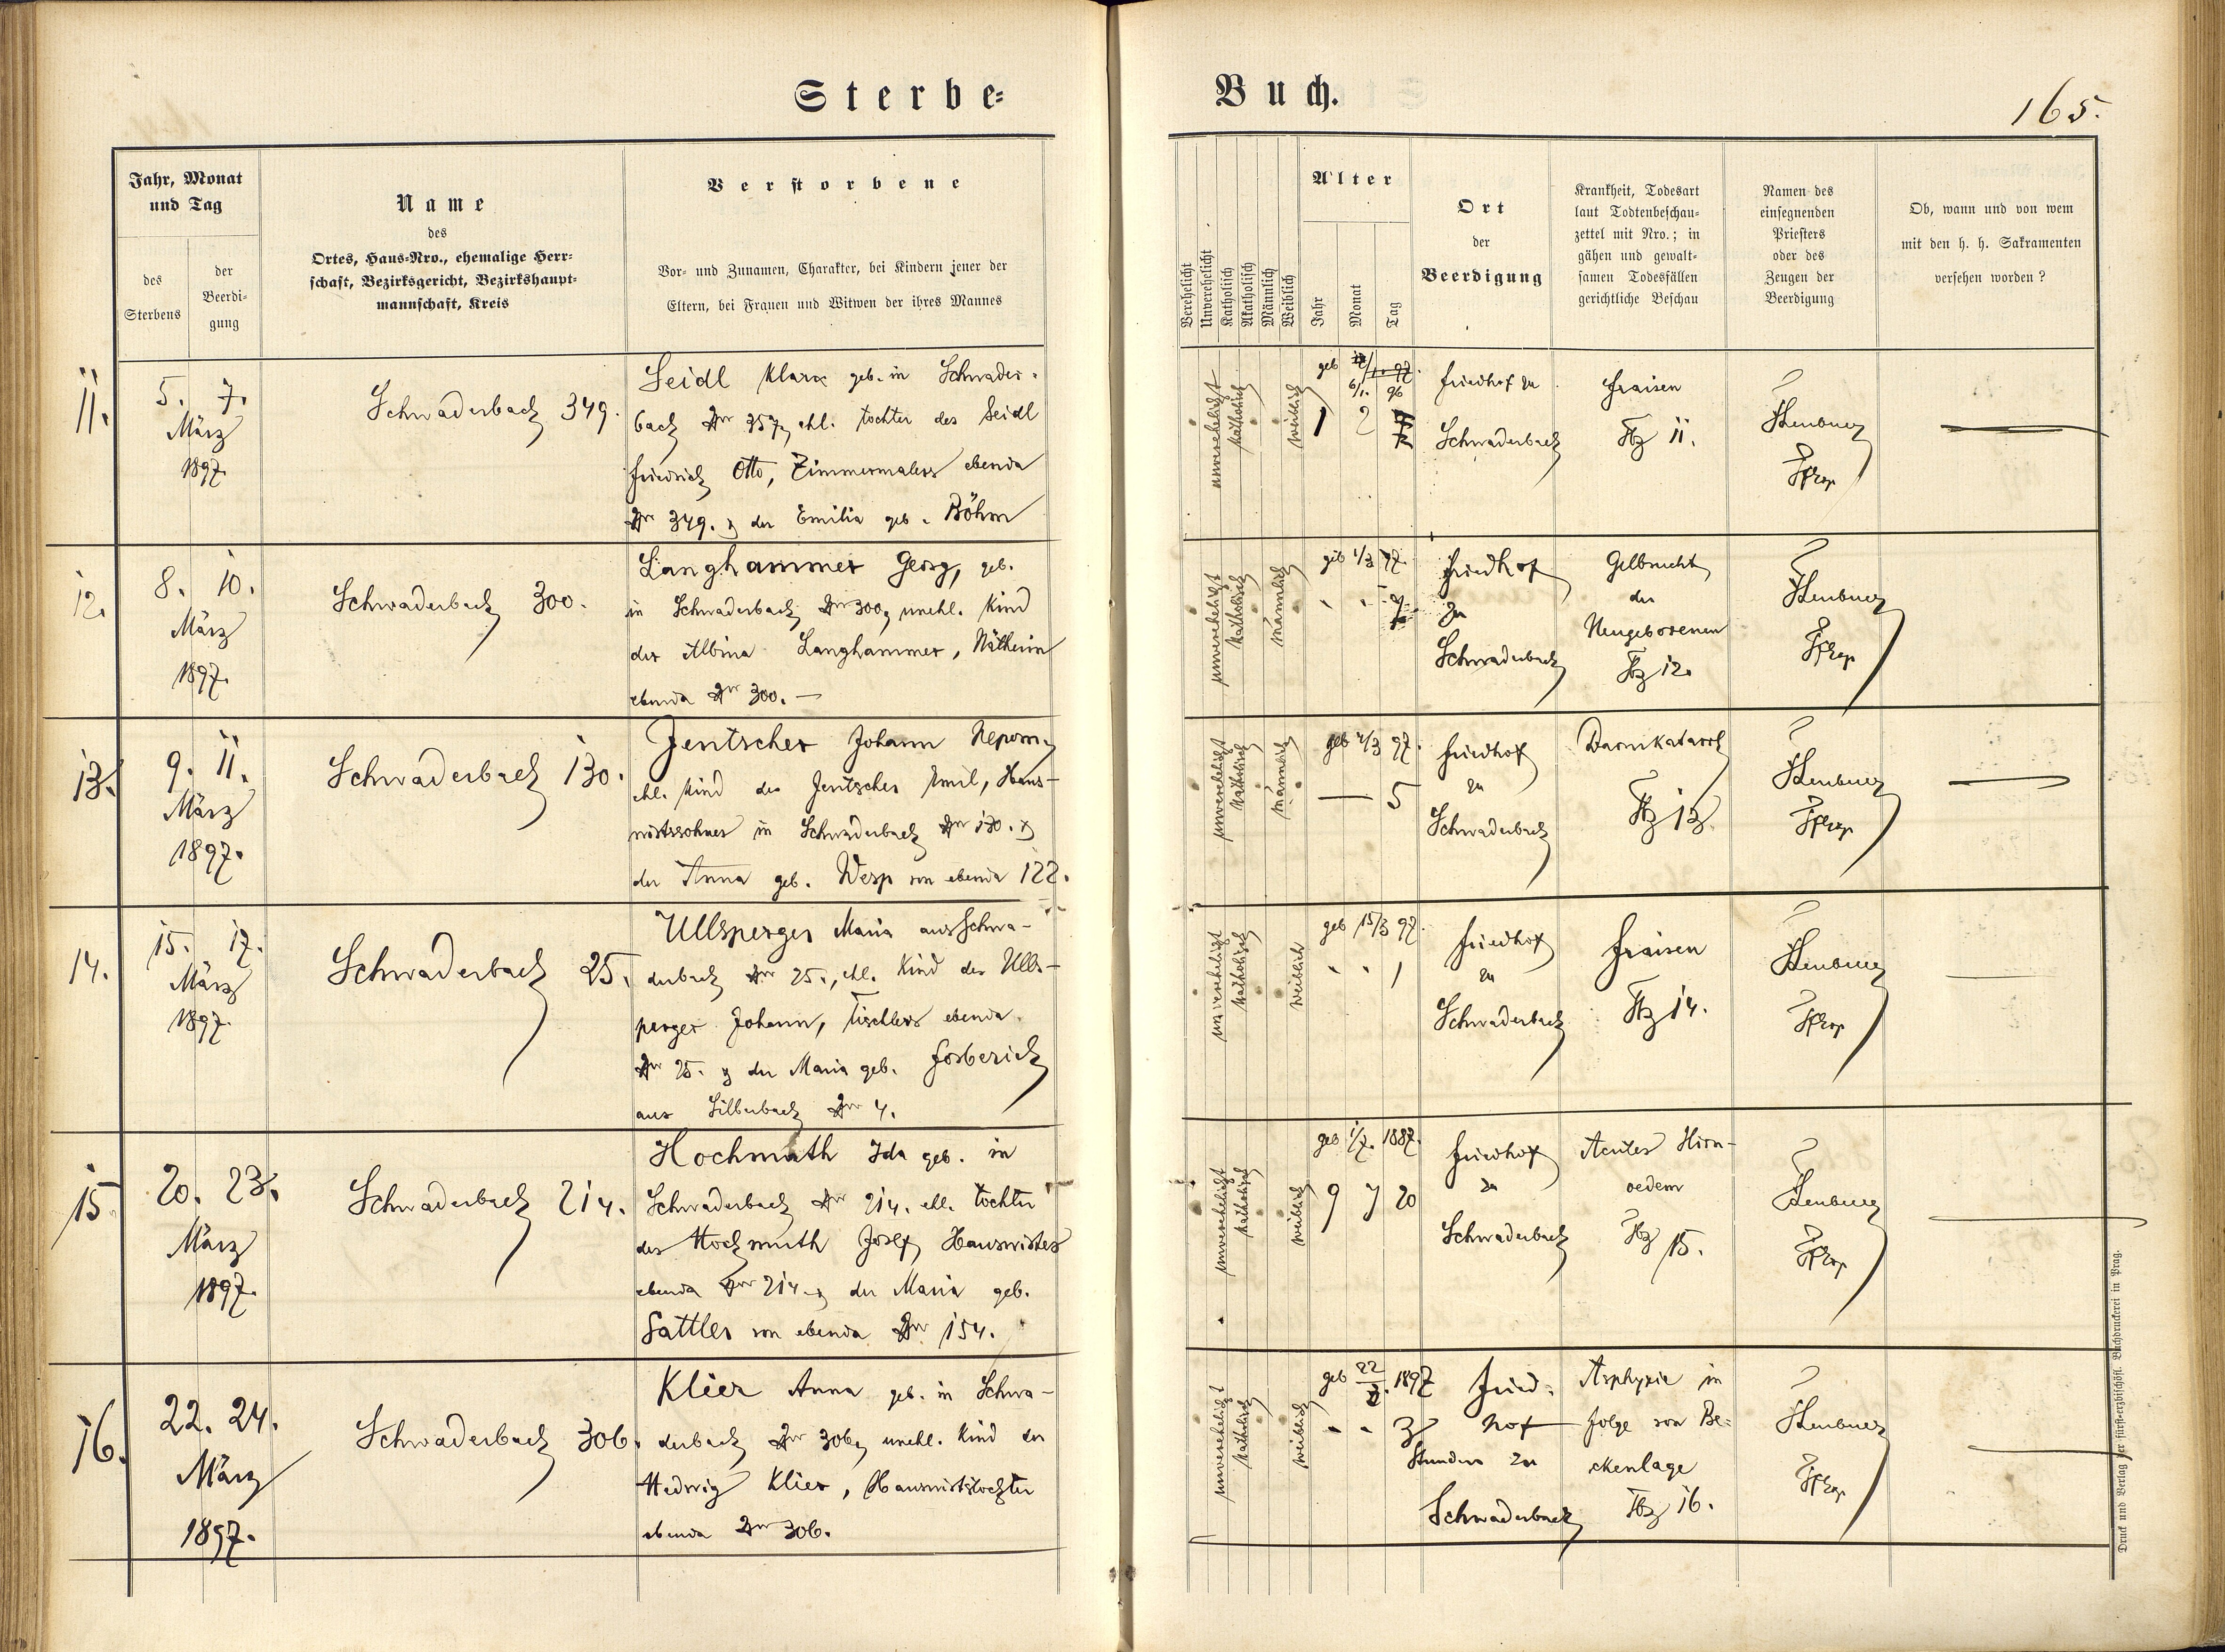 Sterbe=
Buch.
165.
Jahr, Monat
und Tag
des
Sterbens
der
Beerdi-
gung
Name
des
Ortes, Haus-Nro., ehemalige Herr-
schaft, Bezirksgericht, Bezirkshaupt-
mannschaft, Kreis
Verstorbene
Vor- und Zunamen, Charakter, bei Kindern jener der
Eltern, bei Frauen und Witwen der ihres Mannes
Verehelicht
Unverehelicht
Katholisch
Akatholisch
Männlich
Weiblich
Alter
Jahr
Monat
Tag
Ort
der
Beerdigung
Krankheit, Todesart
laut Todtenbeschau-
zettel mit Nro.; in
gähen und gewalt-
samen Todesfällen
gerichtliche Beschau
Namen des
einsegnenden
Priesters
oder des
Zeugen der
Beerdigung
Ob, wann und von wem
mit den h. h. Sakramenten
versehen worden?
11.
5. 7.
März
1897.
Schwaderbach 349.
Seidl Klara geb. in Schwader-
bach 257, ehl. Tochter des Seidl
Friedrich Otto, Zimmermalers ebenda
349. der Emilia geb. Böhm
unverehelicht
katholisch
weiblich
geb
6/1. 96
1 2
Friedhof zu
Schwaderbach
Fraisen
Tbz 11.
12.
8. 10.
März
1897.
Schwaderbach 300.
Langhammer Georg, geb.
in Schwaderbach 300, unehl. Kind
der Albina Langhammer, Nätherin
ebenda 300. —
unverehelicht
katholisch
männlich
geb 1/3 97.
Friedhof
zu
Schwaderbach
Gelbsucht
der
Neugeborenen
Tbz 12.
13.
9. 11.
März
1897.
Schwaderbach 130.
Jentscher Johann Nepom.
ehl. Kind des Jentscher Emil, Haus-
wirtssohnes in Schwaderbach 130.
der Anna geb. Wesp von ebenda 122.
unverehelicht
katholisch
männlich
geb 4/3 97.
— 5
Friedhof
zu
Schwaderbach
Darmkatarrh
Tbz 13.
14.
15. 17.
März
1897.
Schwaderbach 25.
Ullsperger Maria aus Schwa-
derbach 25., ehl. Kind des Ulls-
perger Johann, Tischlers ebenda
25. der Maria geb. Forberich
aus Silberbach 4.
unverehelicht
katholisch
weiblich
geb 15/3 97.
1
Friedhof
zu
Schwaderbach
Fraisen
Tbz 14.
15
20. 23.
März
1897.
Schwaderbach 214.
Hochmuth Ida geb. in
Schwaderbach 214. ehl. Tochter
des Hochmuth Josef, Hauswirtes
ebenda 214. der Maria geb.
Sattler von ebenda 154.
unverehelicht
katholisch
weiblich
geb 1/7. 1887.
9 7 20
Friedhof
zu
Schwaderbach
Acutes Hirn-
oedem
Tbz 15.
16.
22. 24.
März
1897.
Schwaderbach 306.
Klier Anna geb. in Schwa-
derbach 306, unehl. Kind der
Hedwig Klier, Hauswirtstochter
ebenda 306.
unverehelicht
katholisch
weiblich
geb 22/3. 1897
3
Stunden
Fried-
hof
zu
Schwaderbach
Asphyxie in
folge von Be-
ckenlage
Tbz 16.
Druck und Verlag der fürsterzbischöfl. Buchdruckerei in Prag.